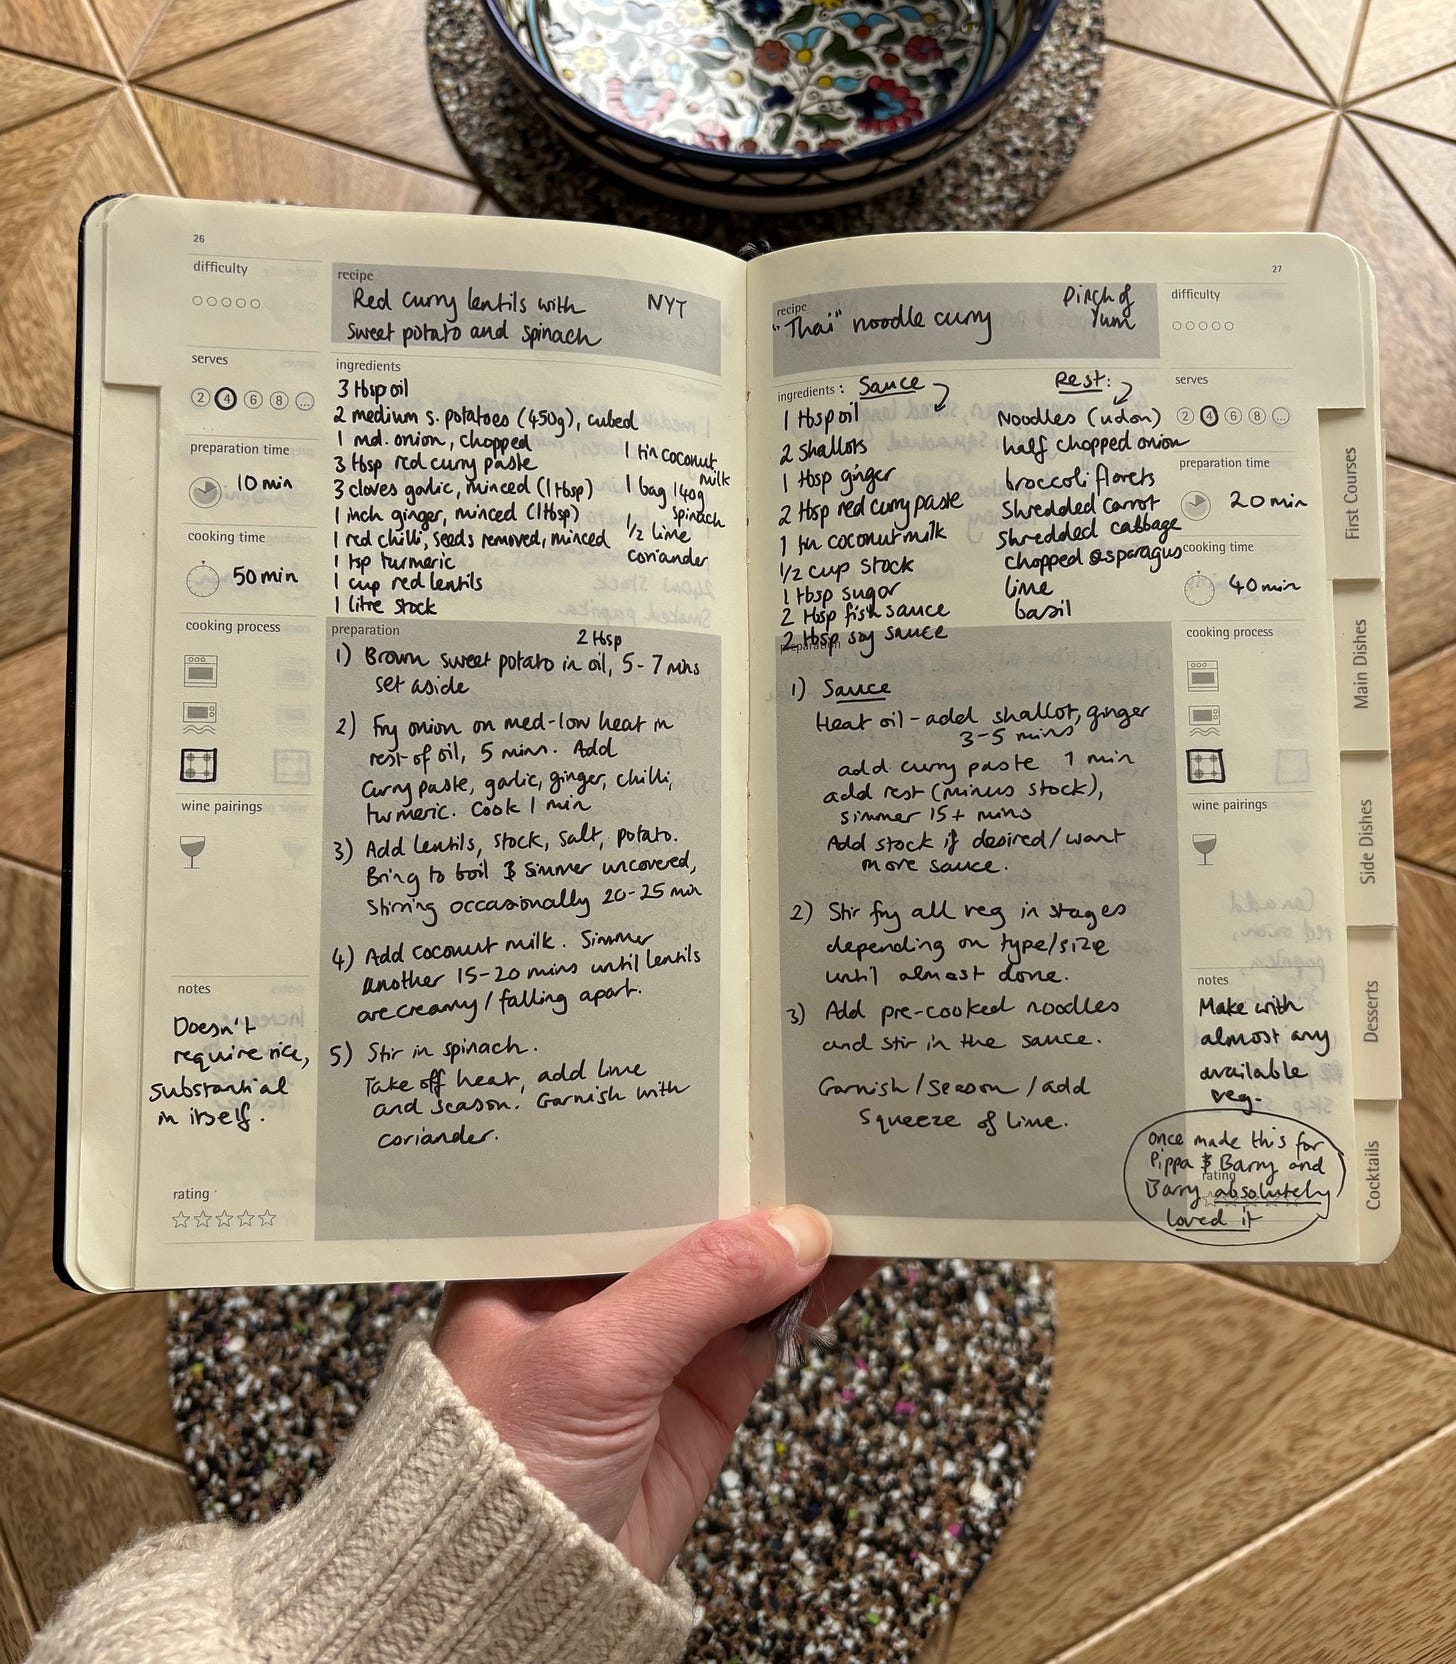 26
difficulty
serves
2 4 6 8 ...
preparation time
10 min
cooking time
50 min
cooking process
wine pairings
notes
Doesn't
require rice,
substantial
in itself.
rating
recipe
Red curry lentils with NYT
sweet potato and spinach
ingredients
3 tbsp oil
2 medium s. potatoes (450g), cubed
1 md. onion, chopped
3 tbsp red curry paste
3 cloves garlic, minced (1 tbsp)
1 inch ginger, minced (1 tbsp)
1 red chilli, seeds removed, minced
1 tsp turmeric
1 cup red lentils
1 litre stock
1 tin coconut
milk
1 bag 140g
spinach
1/2 lime
coriander
preparation
2 tbsp
1) Brown sweet potato in oil, 5-7 mins
set aside
2) Fry onion on med-low heat in
rest of oil, 5 mins. Add
curry paste, garlic, ginger, chilli,
turmeric. Cook 1 min
3) Add lentils, stock, salt, potato.
Bring to boil & simmer uncovered,
stirring occasionally 20-25 min
4) Add coconut milk. Simmer
another 15-20 mins until lentils
are creamy/falling apart.
5) Stir in spinach.
Take off heat, add lime
and season. Garnish with
coriander.
27
recipe
"Thai" noodle curry
Pinch of
Yum
ingredients : Sauce
1 tbsp oil
2 shallots
1 tbsp ginger
2 tbsp red curry paste
1 tin coconut milk
1/2 cup stock
1 tbsp sugar
2 tbsp fish sauce
2 tbsp soy sauce
Rest:
Noodles (udon)
half chopped onion
broccoli florets
shredded carrot
shredded cabbage
chopped asparagus
lime
basil
preparation
1) Sauce
Heat oil - add shallot, ginger
3-5 mins
add curry paste 1 min
add rest (minus stock),
simmer 15+ mins
Add stock if desired/want
more sauce.
2) Stir fry all veg in stages
depending on type/size
until almost done.
3) Add pre-cooked noodles
and stir in the sauce.
Garnish/season/add
squeeze of lime.
difficulty
serves
2 4 6 8 ...
preparation time
20 min
cooking time
40 min
cooking process
wine pairings
notes
Make with
almost any
available
veg.
rating
once made this for
Pippa & Barry and
Barry absolutely
loved it
First Courses
Main Dishes
Side Dishes
Desserts
Cocktails